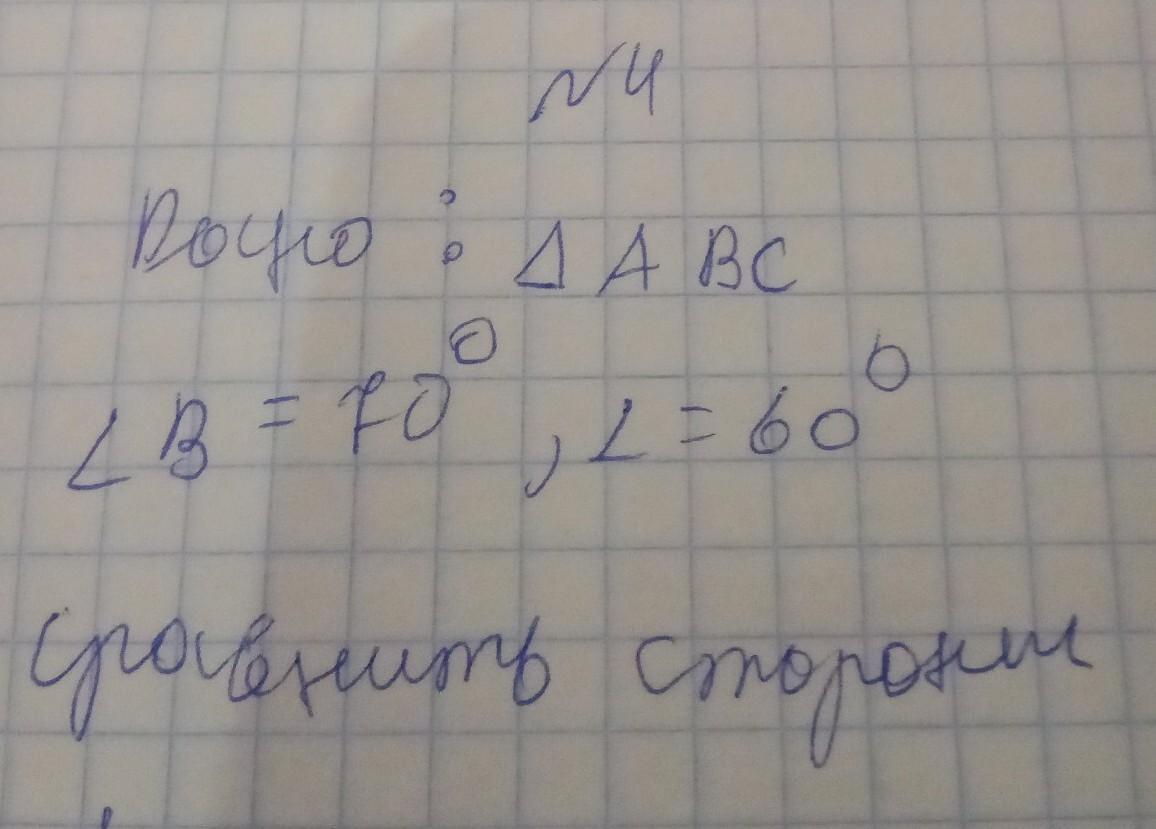 №4
Дано : Δ ABC
∠B = 70⁰, ∠ = 60⁰
Сравнить стороны